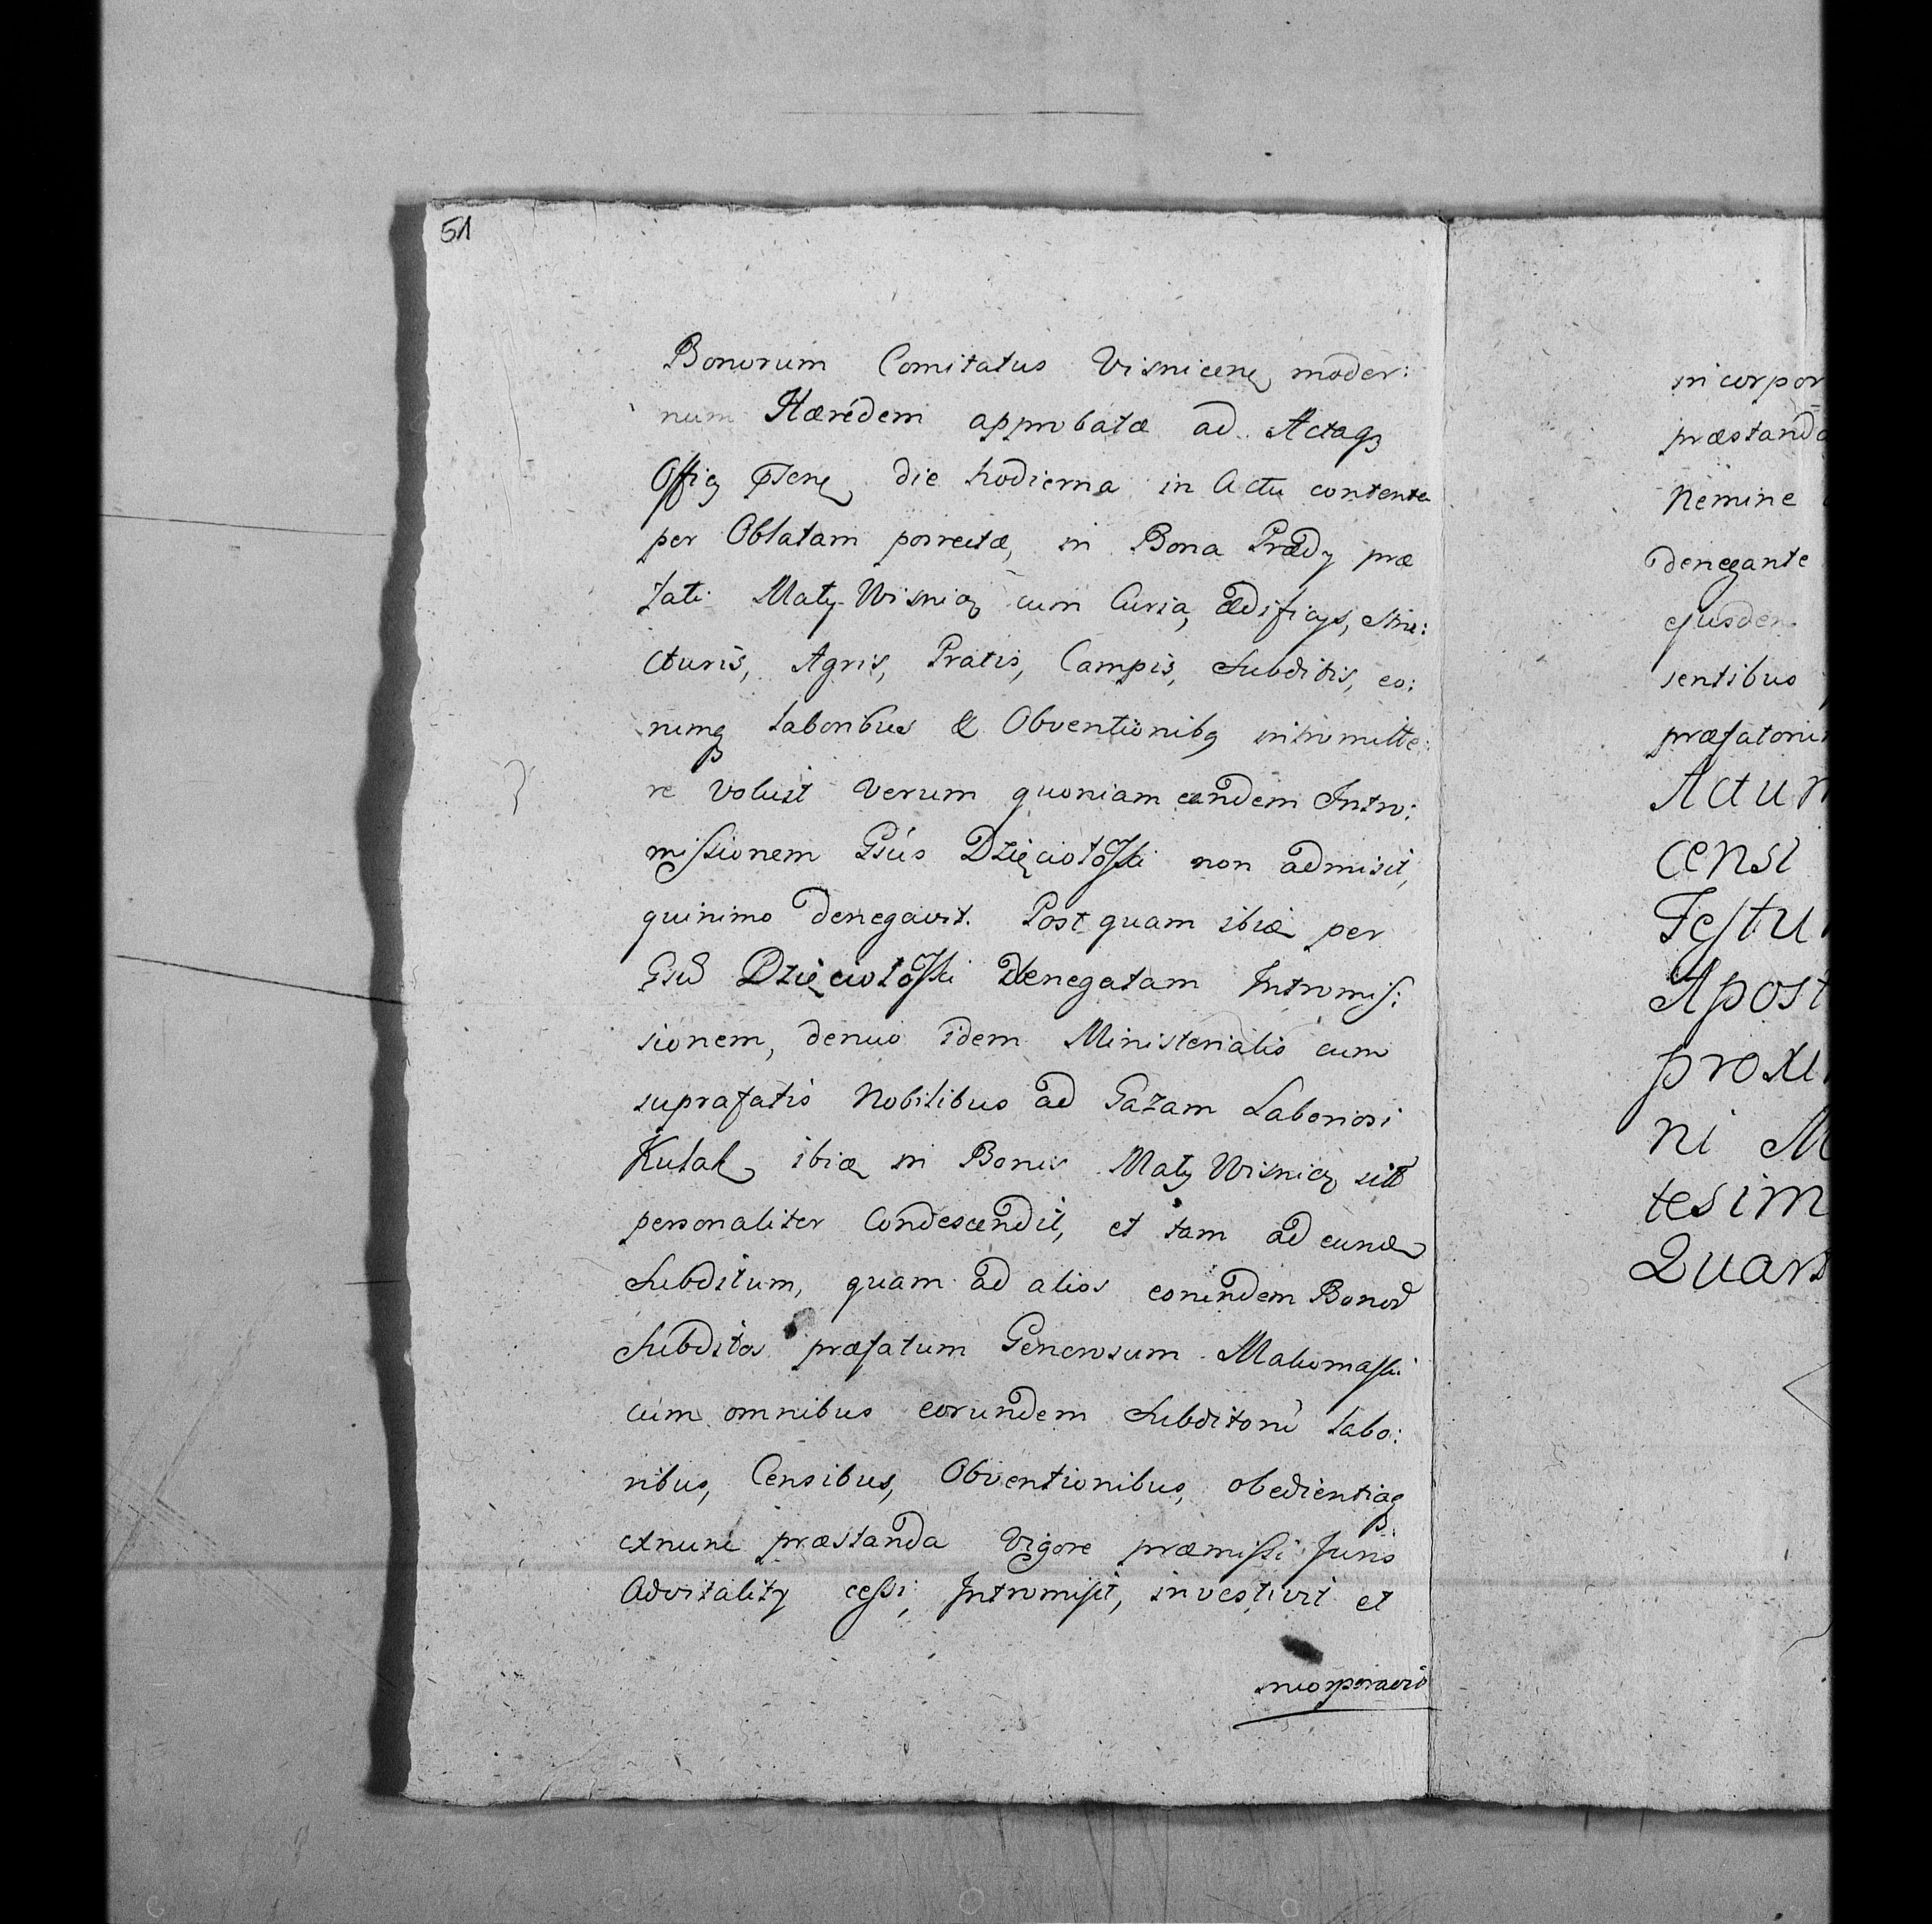 51
Bonorum Comitatus Visnicens moder:
num Hæredem approbatæ ad Actaq
Offic die hodierna in Actu contenta
per Oblatam porrectæ, in Bona Prædy præ
fati Mały Wisnicz cum Curia, ædificijs, stru:
cturis, Agris, Pratis, Campis, Subditis, eo:
rumq laboribus & Obventionibq intromitte:
re voluit verum quoniam eandem Intro:
missionem Gsus Dzięciołoski non admisit,
quinimo denegavit. Post quam ibid per
Gsū Dzięciołoski denegatam Intromis:
sionem, denuo idem Ministerialis cum
suprafatis Nobilibus ad Gazam Laboriosi
Kułak ibid in Bonis Mały Wisnicz sitt
personaliter Condescendit, et tam ad eund
Subditum, quam ad alios eorundem Bonor
Subditos præfatum Generosum
cum omnibus eorundem Subditorū labo:
ribus, Censibus, Obventionibus, obedientiaq
exnunc præstanda vigore præmissi Juris
Advitality cessi, Intromisit, investivit et
incorporavit
incorpor
præstanda
Nemine
denegante
ejusdem
sentibus
præfatorum
Actum
censi
Festu
Apost
proxi
ni M
tesim
Quart